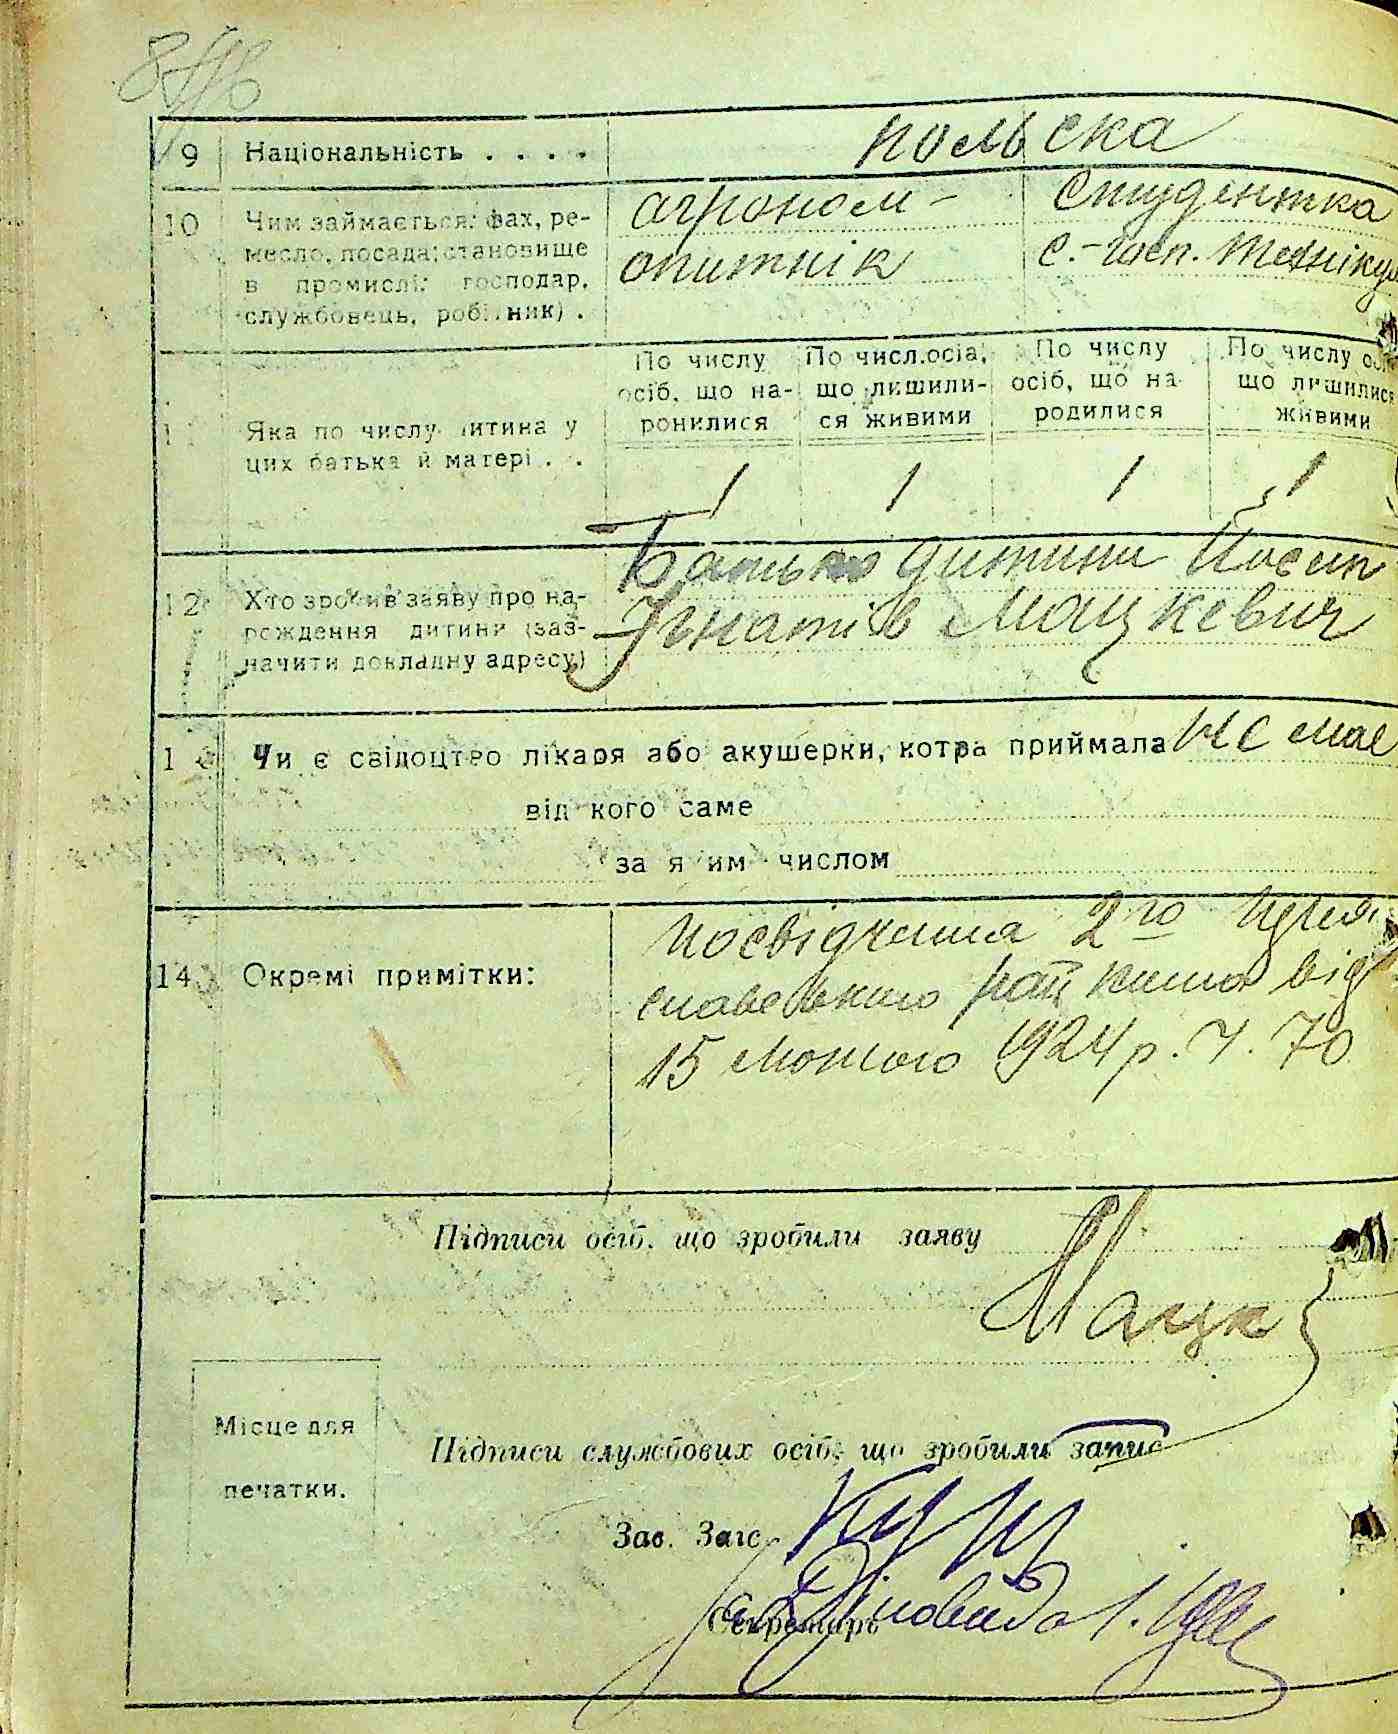 9 Національність . . . . польска
10 Чим займається: фах, ре- агроном - Студентка
месло, посада; становище опитнік с.-госп. Технікум
в промислі: господар,
службовець, робітник) .
По числу По числ.осіб, По числу По числу осіб
осіб, що на- що лишили- осіб, що на- що лишилися
ронилися ся живими родилися живими
Яка по числу дитина у
цих батька й матері . .
1 1 1 1
12 Хто зробив заяву про на- Батько дитини Йосип
рождення дитини (заз- Ігнатів Мацкевич
начити докладну адресу)
1 Чи є свідоцтво лікаря або акушерки, котра приймала не має
від кого саме
за яким числом
14 Окремі примітки:
посвідчення 2го
райкома від
15 Лютого 1924 р. Ч. 70
Підписи осіб, що зробили заяву
Мацк
Місце для
печатки.
Підписи службових осіб, що зробили запис
Зав. Загс
Секретарь